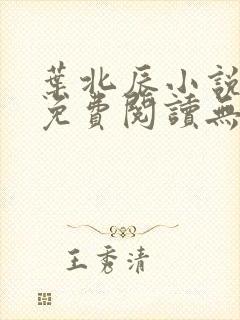 葉北辰小說
免費閱讀無
王秀清